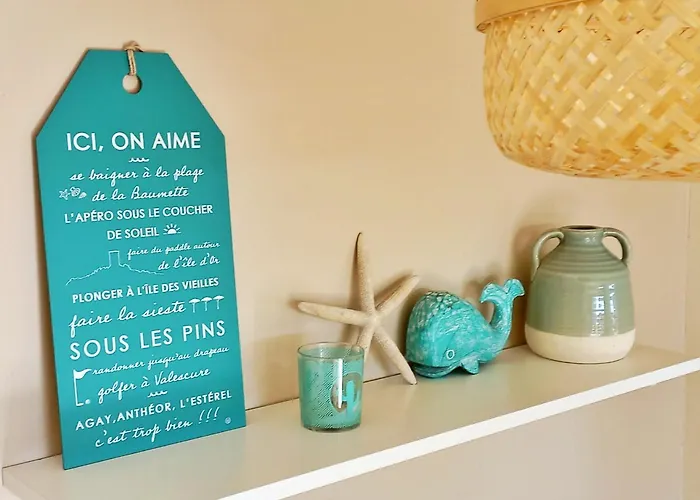 ICI, ON AIME
se baigner à la plage
de la Baumette
L'APÉRO SOUS LE COUCHER
DE SOLEIL
faire du paddle autour
de l'île d'Or
PLONGER À L'ÎLE DES VIEILLES
faire la sieste
SOUS LES PINS
randonner jusqu'au drapeau
golfer à Valescure
AGAY, ANTHÉOR, L'ESTÉREL
c'est trop bien !!!